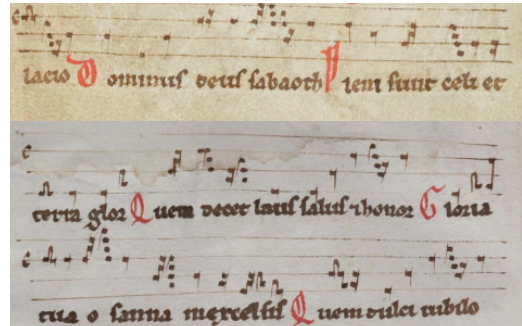 lacio Dominus deus sabaoth Pleni sunt celi et
terra glor Quem decet laus salus ⁊ honor Gloria
tua o sanna inexcelsis Quem dulci iubilo